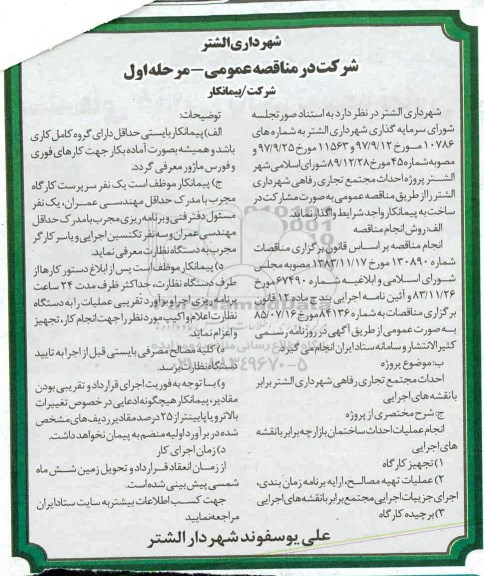 شهرداری الشتر
شرکت در مناقصه عمومی – مرحله اول
شرکت/پیمانکار
شهرداری الشتر در نظر دارد به استناد صورتجلسه
شورای سرمایه گذاری شهرداری الشتر به شماره های
۱۰۷۸۶ مورخ ۹۷/۹/۱۲ و ۱۱۵۶۳ مورخ ۹۷/۹/۲۵ و
مصوبه شماره ۴۵ مورخ ۸۹/۱۲/۲۸ شورای اسلامی شهر
الشتر پروژه احداث مجتمع تجاری رفاهی شهرداری
الشتر را از طریق مناقصه عمومی به صورت مشارکت در
ساخت به پیمانکار واجد شرایط واگذار نماید.
الف: روش انجام مناقصه
انجام مناقصه بر اساس قانون برگزاری مناقصات
شماره ۱۳۰۸۹۰ مورخ ۱۳۸۳/۱۱/۱۷ مصوبه مجلس
شورای اسلامی و ابلاغیه شماره ۶۷۴۹۰ مورخ
۸۳/۱۱/۲۶ و آئین نامه اجرایی بند ج ماده ۱۲ قانون
برگزاری مناقصات به شماره ۸۴۱۳۶ مورخ ۸۵/۰۷/۱۶
به صورت عمومی از طریق آگهی در روزنامه رسمی
کثیرالانتشار و سامانه ستاد ایران انجام می گیرد.
ب: موضوع پروژه
احداث مجتمع تجاری رفاهی شهرداری الشتر برابر
با نقشه های اجرایی
ج: شرح مختصری از پروژه
انجام عملیات احداث ساختمان بازارچه برابر با نقشه
های اجرایی
۱) تجهیز کارگاه
۲) عملیات تهیه مصالح، ارایه برنامه زمان بندی،
اجرای جزییات اجرایی مجتمع برابر با نقشه های اجرایی
۳) برچیده کارگاه
توضیحات:
الف) پیمانکار بایستی حداقل دارای گروه کامل کاری
باشد و همیشه بصورت آماده بکار جهت کارهای فوری
و فورس ماژور معرفی گردد.
ج) پیمانکار موظف است یک نفر سرپرست کارگاه
مجرب با مدرک حداقل مهندسی عمران، یک نفر
مسئول دفتر فنی و برنامه ریزی مجرب با مدرک حداقل
مهندسی عمران و سه نفر تکنسین اجرایی و یا سرکارگر
مجرب به دستگاه نظارت معرفی نماید.
د) پیمانکار موظف است پس از ابلاغ دستور کارها از
طرف دستگاه نظارت، حداکثر ظرف مدت ۲۴ ساعت
برنامه ریزی اجرا و برآورد تقریبی عملیات را به دستگاه
نظارت اعلام و اکیپ مورد نظر را جهت انجام کار، تجهیز
و اعزام نماید.
ه) کلیه مصالح مصرفی بایستی قبل از اجرا به تایید
دستگاه نظارت برسد.
و) با توجه به فوریت اجرای قرارداد و تقریبی بودن
مقادیر، پیمانکار هیچگونه ادعایی در خصوص تغییرات
بالاتر و یا پایینتر از ۲۵ درصد مقادیر ردیف های مشخص
شده در برآورد اولیه منضم به پیمان نخواهد داشت.
د) زمان اجرای کار
از زمان انعقاد قرارداد و تحویل زمین شش ماه
شمسی پیش بینی شده است.
جهت کسب اطلاعات بیشتر به سایت ستاد ایران
مراجعه نمایید
علی یوسفوند شهردار الشتر